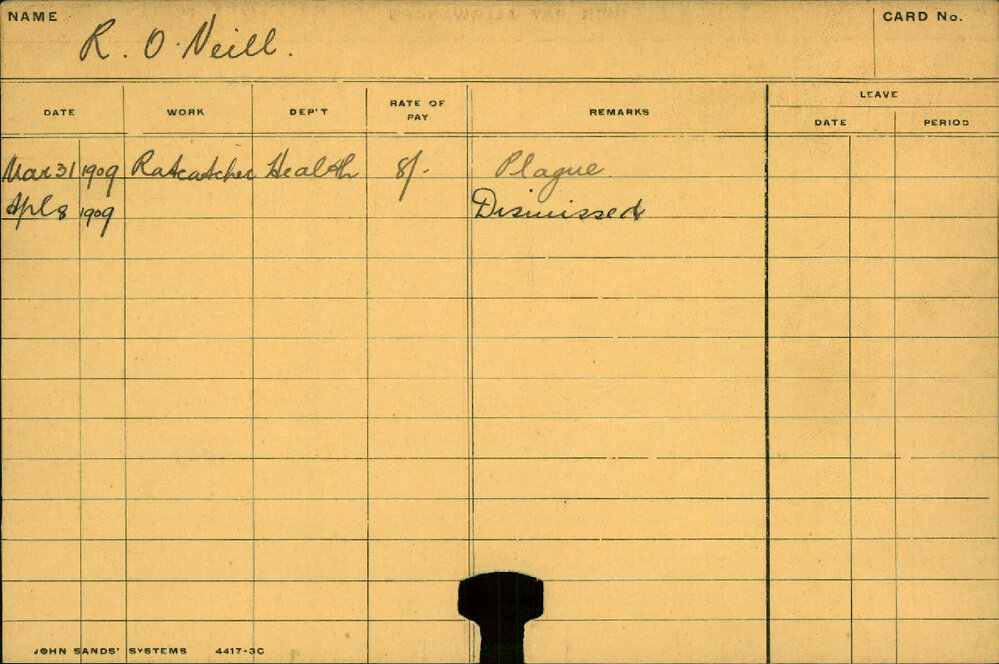 NAME
R. O'Neill.
CARD No.
DATE WORK DEP'T RATE OF PAY REMARKS LEAVE
DATE PERIOD
Mar 31 1909 Ratcatcher Health 8/- Plague.
Apl 8 1909 Dismissed
JOHN SANDS' SYSTEMS 4417-3C